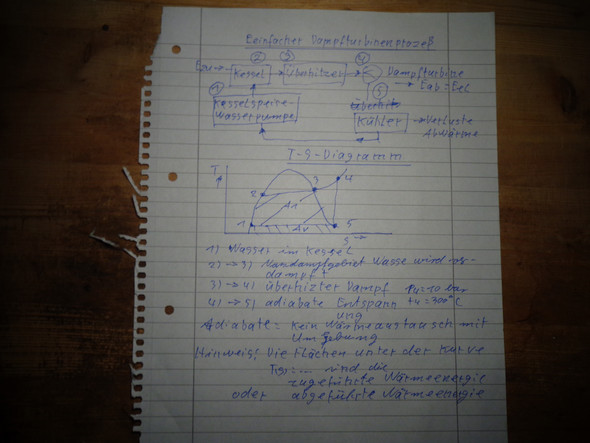 Einfacher Dampfturbinenprozeß
② ③ ④
Kessel Überhitzer Dampfturbine
① ⑤ Eab = Eel
Kesselspeise-
Wasserpumpe
Kühler → Verluste
Abwärme
T-S-Diagramm
T
3 4
2
A1
1 Av 5
S →
1) Wasser im Kessel
2) → 3) Nassdampfgebiet Wasse wird ver-
dampft
3) → 4) überhizter Dampf p4 = 10 bar
4) → 5) adiabate Entspann t4 = 300°C
ung
Adiabate: Kein Wärmeaustausch mit
Umgebung
Hinweis! Die Flächen unter der Kurve
sind die
zugeführte Wärmeenergie
oder abgeführte Wärmeenergie